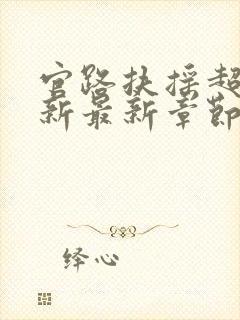 官路扶摇超
新最新章节
绎心